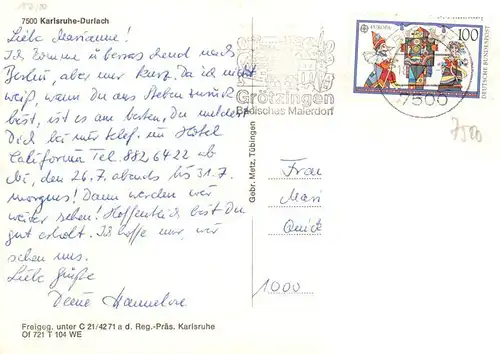 7500 Karlsruhe-Durlach
Liebe Marianne!
Ich komme überraschend nach
Berlin, aber nur kurz. Da ich nicht
weiß, wann Du aus Steben zurück
bist, ist es am besten, Du meldest
Dich bei mir telef. im Hotel
California Tel. 882 64 22 ab
Mi, den 26.7. abends bis 31.7.
morgens! Dann werden wir
weiter sehen! Hoffentlich bist Du
gut erholt. Ich hoffe nur, wir
sehen uns.
Liebe Grüße
Deine Hannelore
Freigeg. unter C 21/4271 a d. Reg.-Präs. Karlsruhe
Of 721 T 104 WE
Gebr. Metz, Tübingen
Grötzingen
Badisches Malerdorf
EUROPA
100
DEUTSCHE BUNDESPOST
7500
7500
Frau
Mari
1000